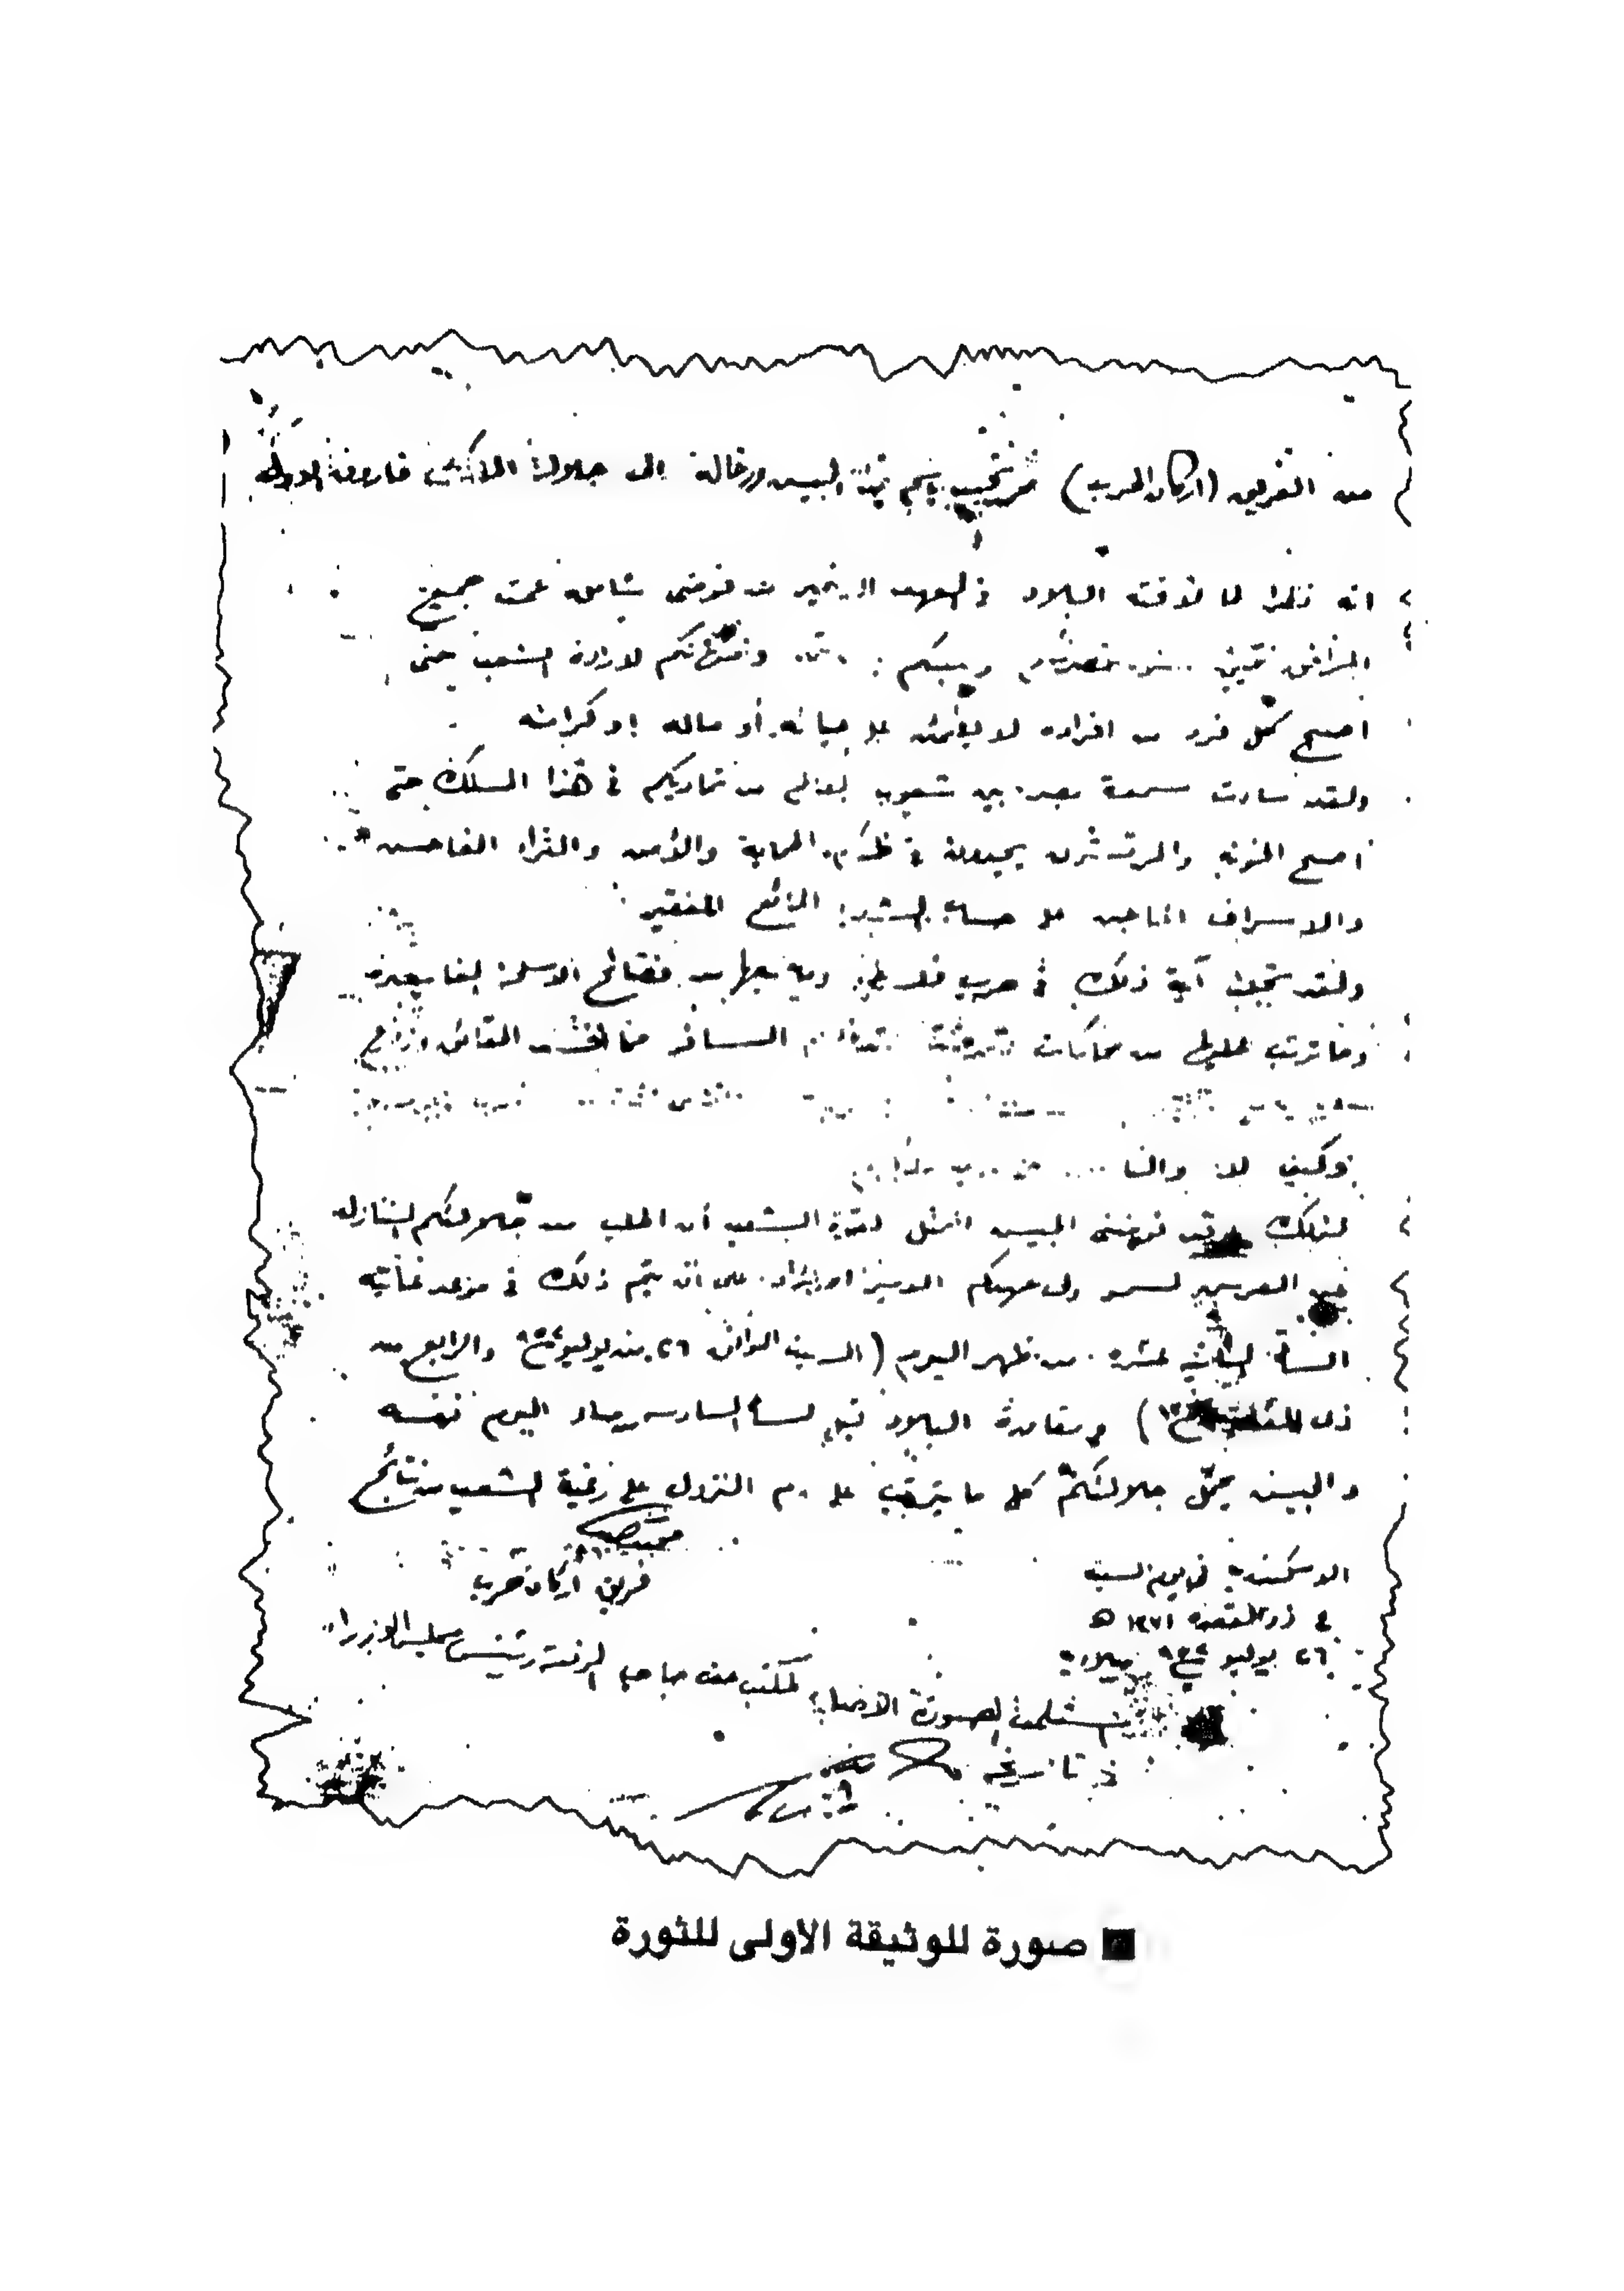 من الفريق (أركان الحرب) محمد نجيب باسم ضباط الجيش ورجاله إلى جلالة الملك فاروق الأول
انه نظرا لما لاقته البلاد في العهد الاخير من فوضى شاملة عمت جميع
المرافق نتيجة سوء تصرفكم وعبثكم وامتهانكم لارادة الشعب حتى
اصبح كل فرد من افراده لا يطمئن على حياته أو ماله او كرامته
ولقد ساءت سمعة مصر بين شعوب العالم من تماديكم في هذا المسلك حتى
اصبح الخونة والمرتشون يجدون في ظلكم الحماية والأمن والثراء الفاحش
والاسراف الماجن على حساب الشعب الجائع الفقير
ولقد تجلت آية ذلك في حرب فلسطين وما تبعها من فضائح الاسلحة الفاسدة
وما ترتب عليها من محاكمات تعرضت لتدخلكم السافر مما افسد الحقائق وزعزع
وكيف لا والناس
لذلك قد فوضنى الجيش الممثل لقوة الشعب أن اطلب من جلالتكم التنازل
عن العرش لسمو ولى عهدكم الامير احمد فؤاد على ان يتم ذلك في موعد غايته
الساعة الثانية عشرة من ظهر اليوم (السبت الموافق ٢٦ من يوليو ١٩٥٢ والرابع من
ذى القعدة ١٣٧١) ومغادرة البلاد قبل الساعة السادسة من مساء اليوم نفسه
والجيش يحمل جلالتكم كل ما يترتب على عدم النزول على رغبة الشعب من نتائج
فريق أركان حرب
الاسكندرية في يوم السبت
٤ ذو القعدة ١٣٧١ ه
٢٦ يوليو ١٩٥٢ ميلادية
استلمت الصورة الاصلية لمكتب حضرة صاحب الرفعة رئيس مجلس الوزراء
في تاريخه
■ صورة للوثيقة الاولى للثورة